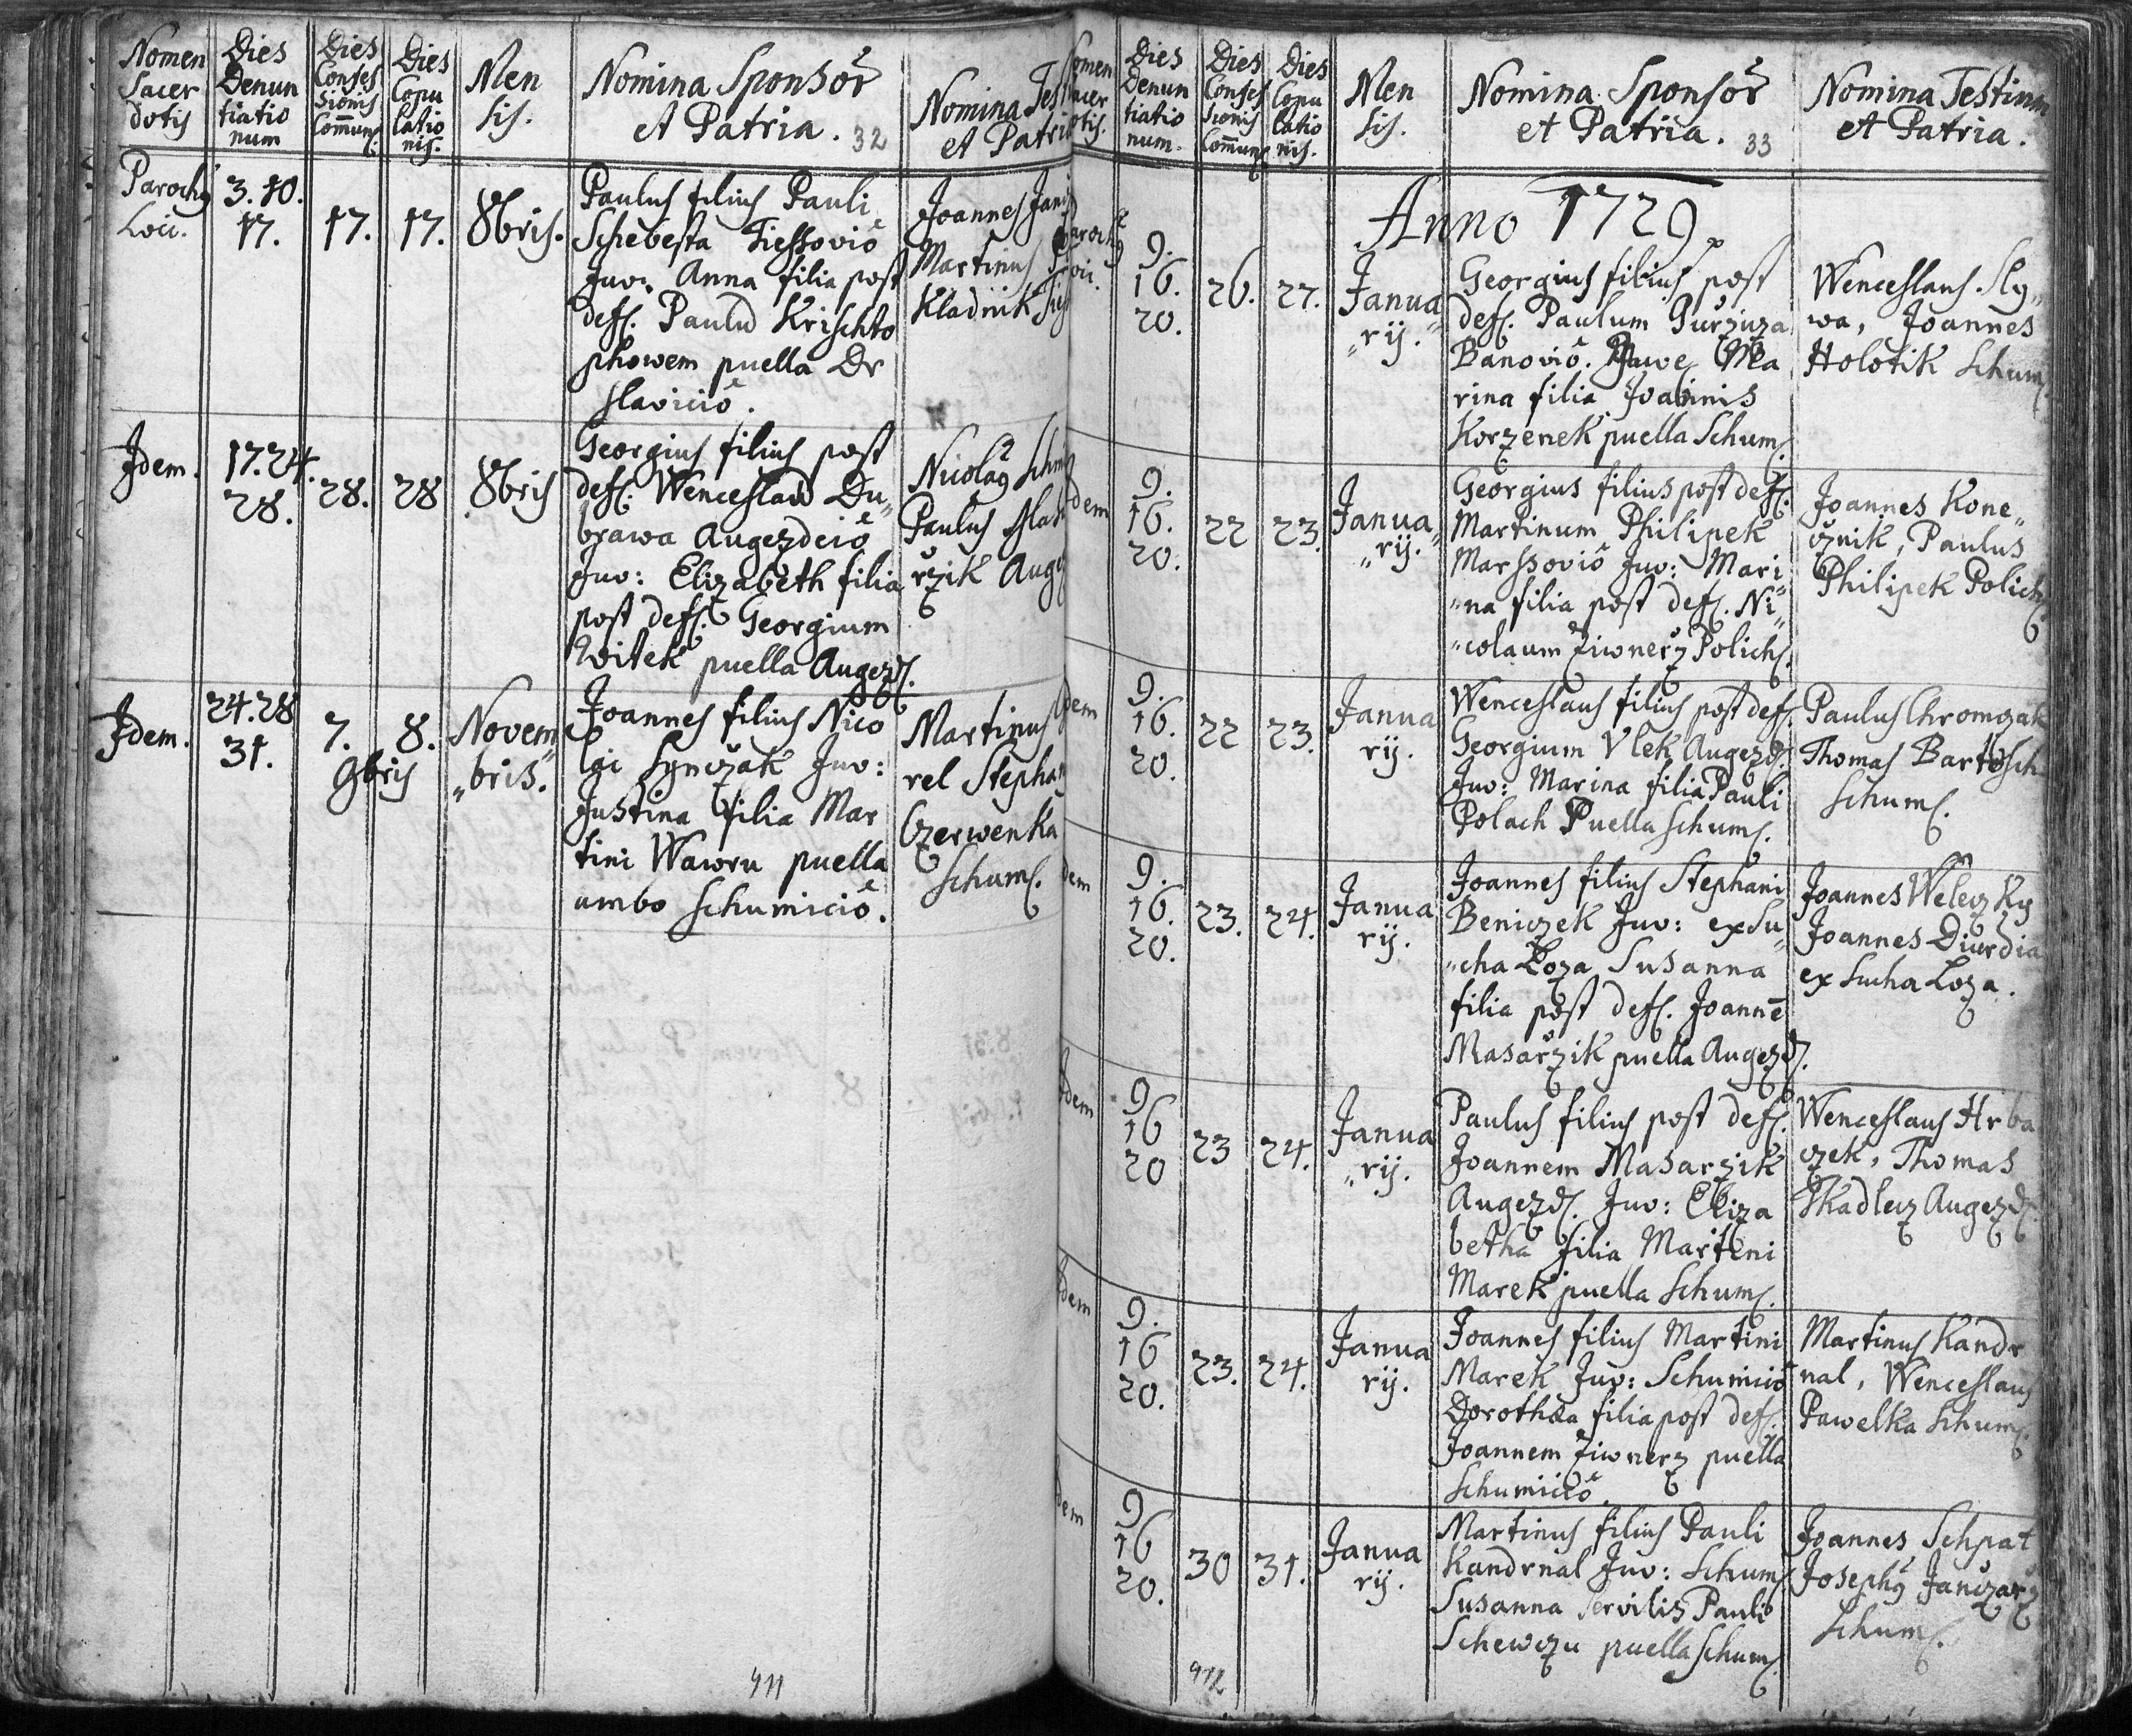 Nomen Sacer dotis
Dies Denun tiatio num
Dies Confes sionis Comũn:
Dies Copu latio nis.
Men sis.
Nomina Sponsor̃ et Patria. 32
Nomina Tes et Patri
Parochꝰ Loci.
3. 10. 17.
17.
17.
8bris.
Paulus filius Pauli
Schebesta Tiessović
Juv: Anna filia post
def. Paulũ Krischto
phowem puella Dr
slavicić.
Joannes Jani
Martinus
Kladnik
Idem.
17. 24. 28.
28.
28
8bris
Georgius filius post
def. Wenceslaũ Du„
brawa Augezdcić
Juv: Elizabeth filia
post def. Georgium
Witek puella Augezd.
Nicolaꝰ
Paulus
rzik Aug
Idem.
24. 28 31.
7.
8.
9bris
Novem „bris.
Joannes filius Nico
lai Synczak Juv:
Justina filia Mar
tini Wawru puella
ambo Schumicić.
Martinus
rel Stephan
Czerwenka
Schum.
411
omen acer otis.
Dies Denun tiatio num.
Dies Confes sionis Comun
Dies Copu latio nis.
Men sis.
Nomina Sponsor̃ et Patria. 33
Nomina Testium et Patria.
Anno 1729.
arochꝰ
9. 16. 20.
26.
27.
Janua „rij.
Georgius filius post
def. Paulum Gurziza
Banović. Juve Ma
rina filia Joannis
Korzenek puella Schum.
Wenceslaus Sly„
wa, Joannes
Holotik Schum.
dem
9. 16. 20.
22
23.
Janua „rij.
Georgius filius post def.
Martinum Philipek
Marssović Juv: Mari„
„na filia post def. Ni„
„colaum Ziwnerz Polich.
Joannes Kone„
cznik, Paulus
Philipek Polich
dem
9. 16. 20.
22
23.
Janua rij.
Wenceslaus filius post def.
Georgium Vlek Augezd.
Juv: Marina filia Pauli
Polach Puella Schum.
Paulus Chromczak
Thomas Bartosch
Schum.
dem
9. 16. 20.
23.
24.
Janua rij.
Joannes filius Stephani
Beniczek Juv: ex Su„
„cha Loza Susanna
filia post def. Joannē
Masarzik puella Augezd.
Joannes Weleczky
Joannes Diurdia
ex Sucha Loza.
dem
9 16 20
23
24.
Janua „rij.
Paulus filius post def.
Joannem Masarzik
Augezd. Juv: Eliza
betha filia Martini
Marek puella Schum.
Wenceslaus Hrba
czek, Thomas
Tkadlecz Augezd.
dem
9. 16 20.
23.
24.
Janua rij.
Joannes filius Martini
Marek Juv: Schumicić
Dorothea filia post def.
Joannem Ziwnerz puella
Schumicić
Martinus Kandr
nal, Wenceslaus
Pawelka Schum.
dem
9 16 20.
30
31.
Janua rij.
Martinus filius Pauli
Kandrnal Juv: Schum.
Susanna servilis Pauli
Schewczu puella Schum.
Joannes Schpat
Josephꝰ Janczarz
Schum.
412